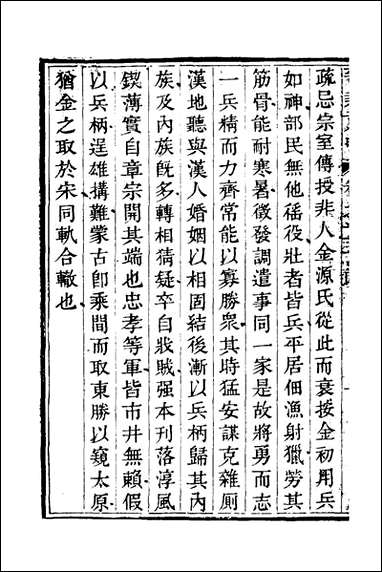 疏忌宗室傳授非人金源氏從此而衰按金初用兵
如神部民無他徭役壯者皆兵平居佃漁射獵勞其
筋骨能耐寒暑徵發調遣事同一家是故將勇而志
一兵精而力齊常能以寡勝衆其時猛安謀克雜厠
漢地聽與漢人婚姻以相固結後漸以兵柄歸其內
族及內族旣多轉相猜疑卒自戕賊强本刋落淳風
鍥薄實自章宗開其端也忠孝等軍皆市井無賴假
以兵柄逞雄搆難蒙古卽乘間而取東勝以窺太原
猶金之取於宋同軌合轍也